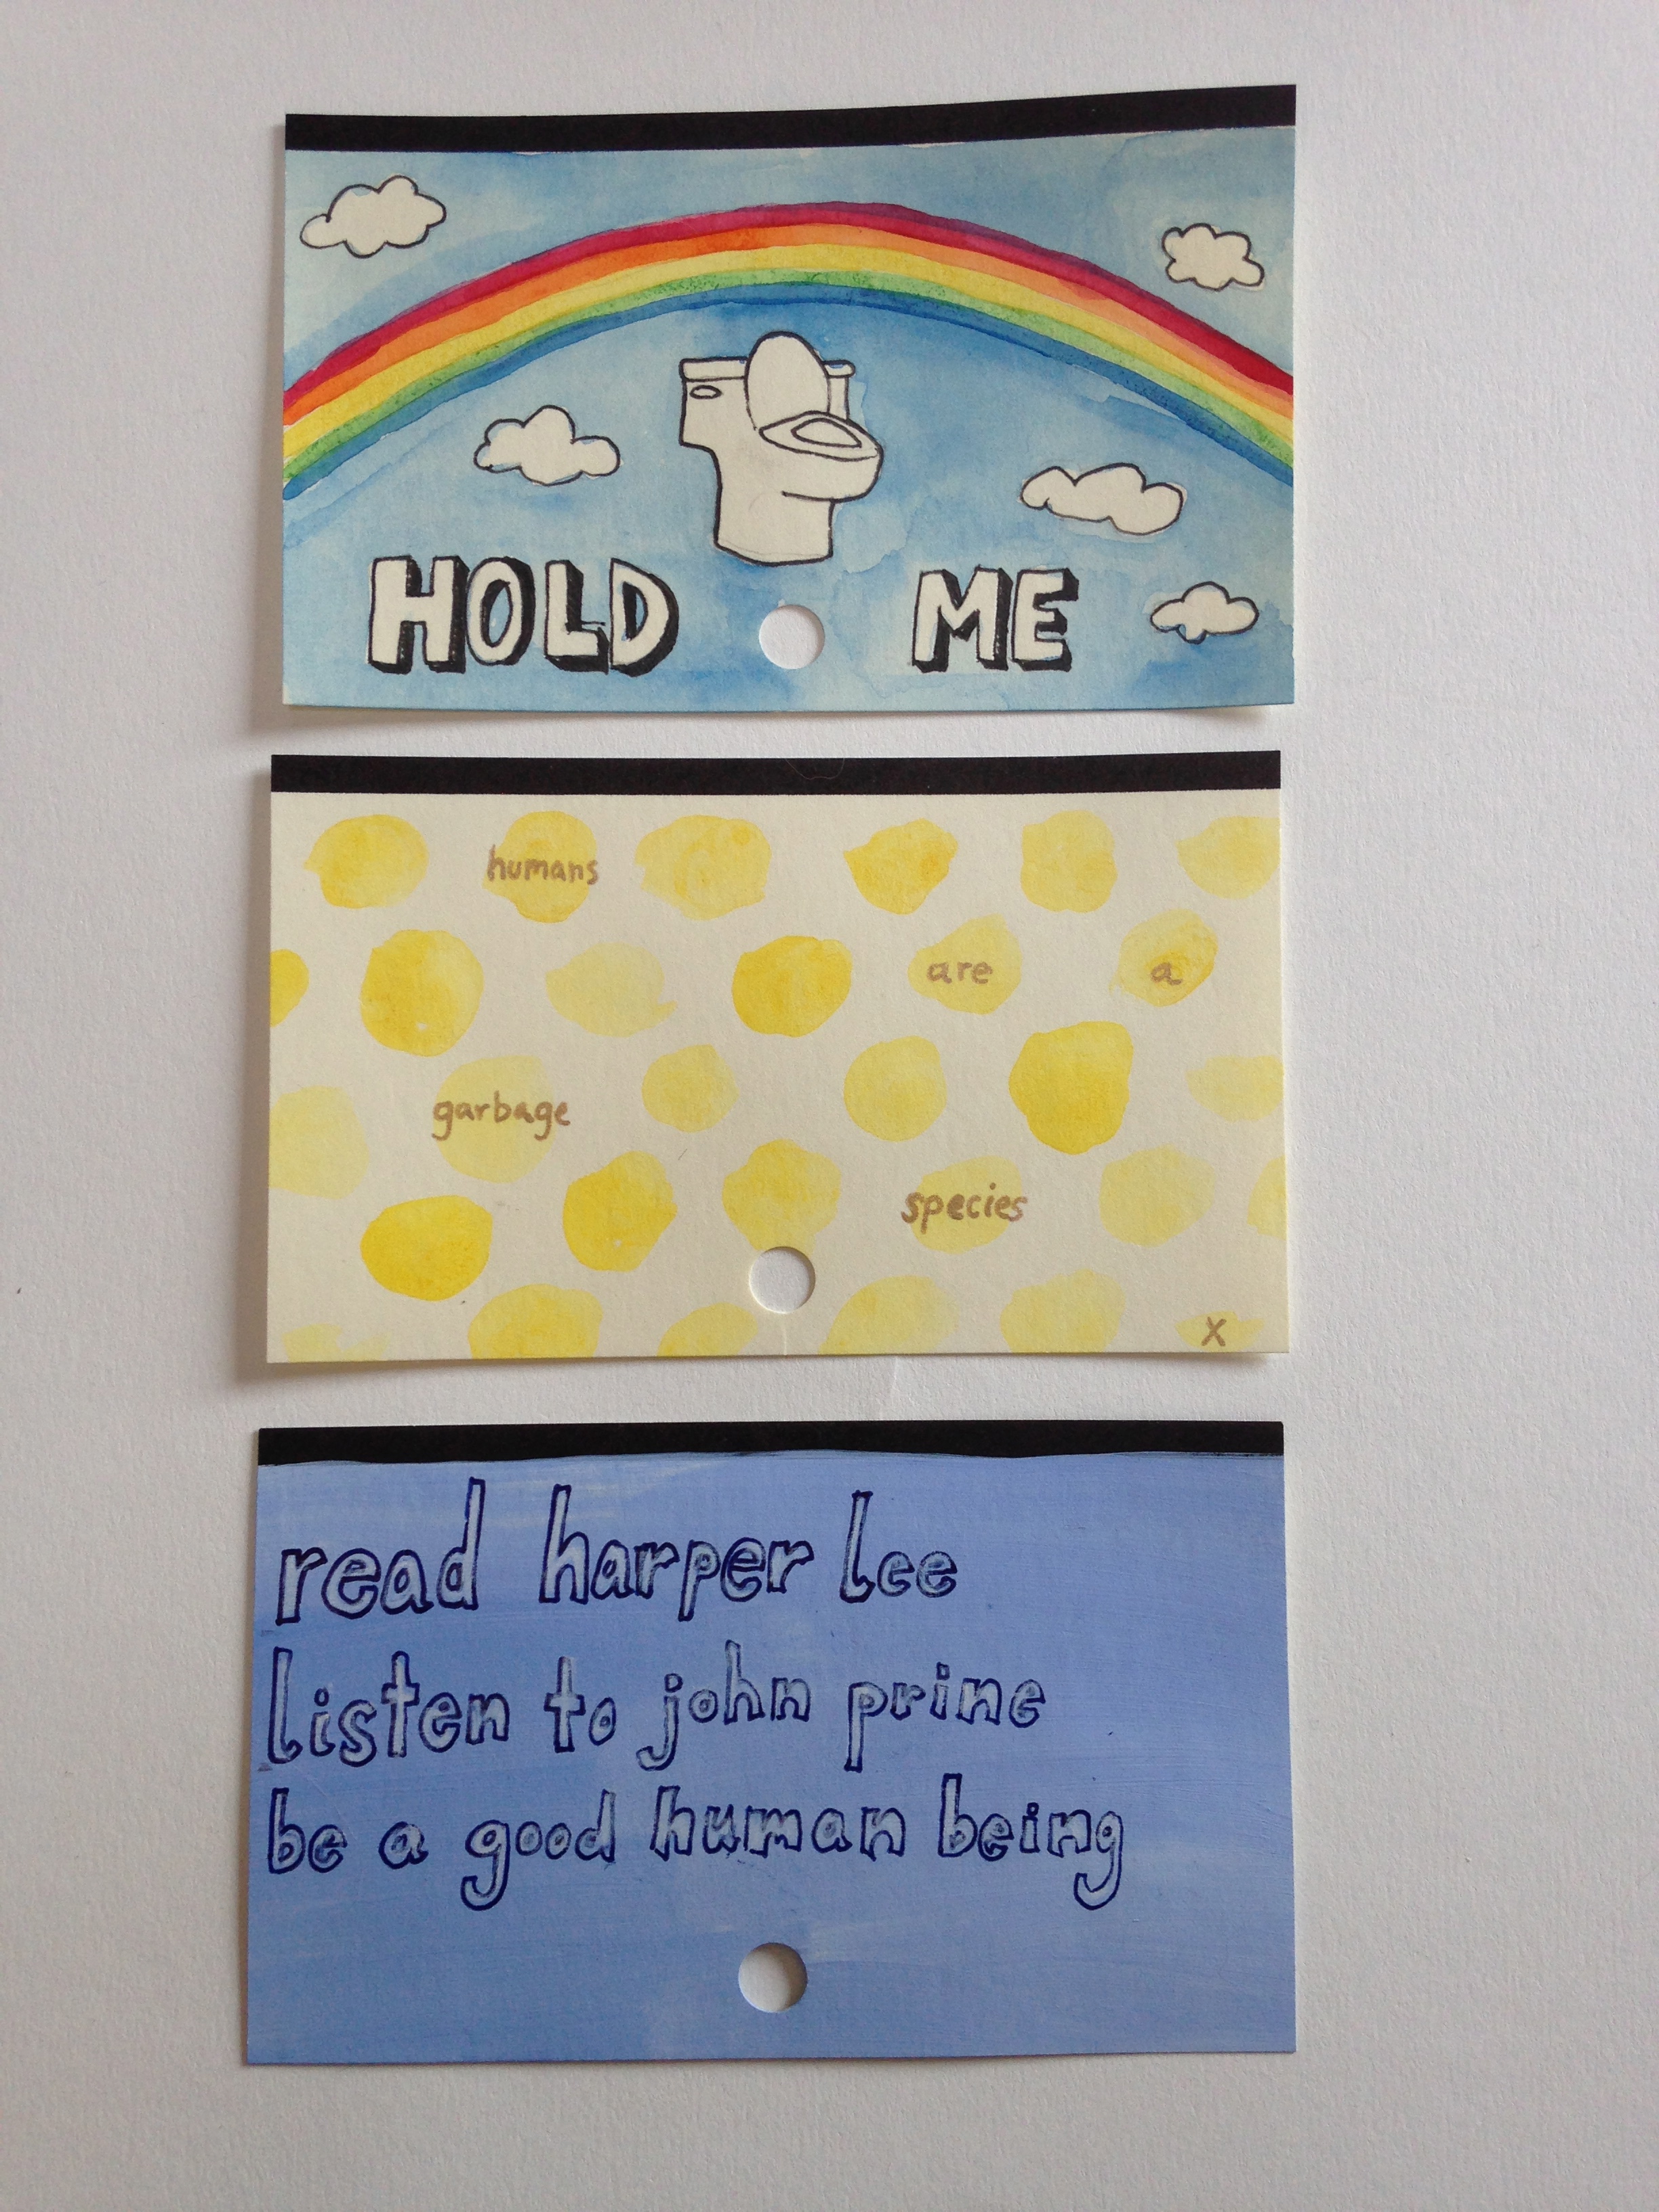 HOLD ME
humans
are a
garbage
species
X
read harper lee
listen to john prine
be a good human being